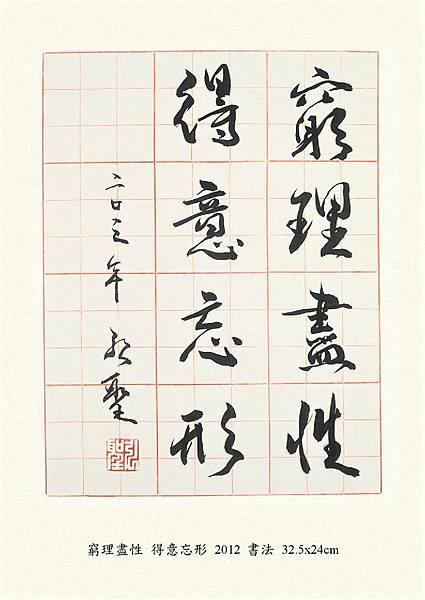 窮理盡性
得意忘形
二〇三年 弘聖
窮理盡性 得意忘形 2012 書法 32.5x24cm